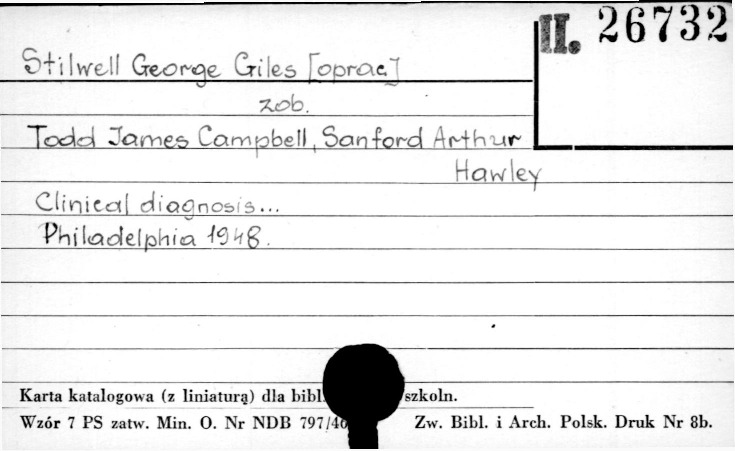 II. 26732
Stilwell George Giles [oprac]
zob.
Todd James Campbell, Sanford Arthur
Hawley
Clinical diagnosis...
Philadelphia 1948.
Karta katalogowa (z liniaturą) dla bibl. szkoln.
Wzór 7 PS zatw. Min. O. Nr NDB 797/46 Zw. Bibl. i Arch. Polsk. Druk Nr 8b.